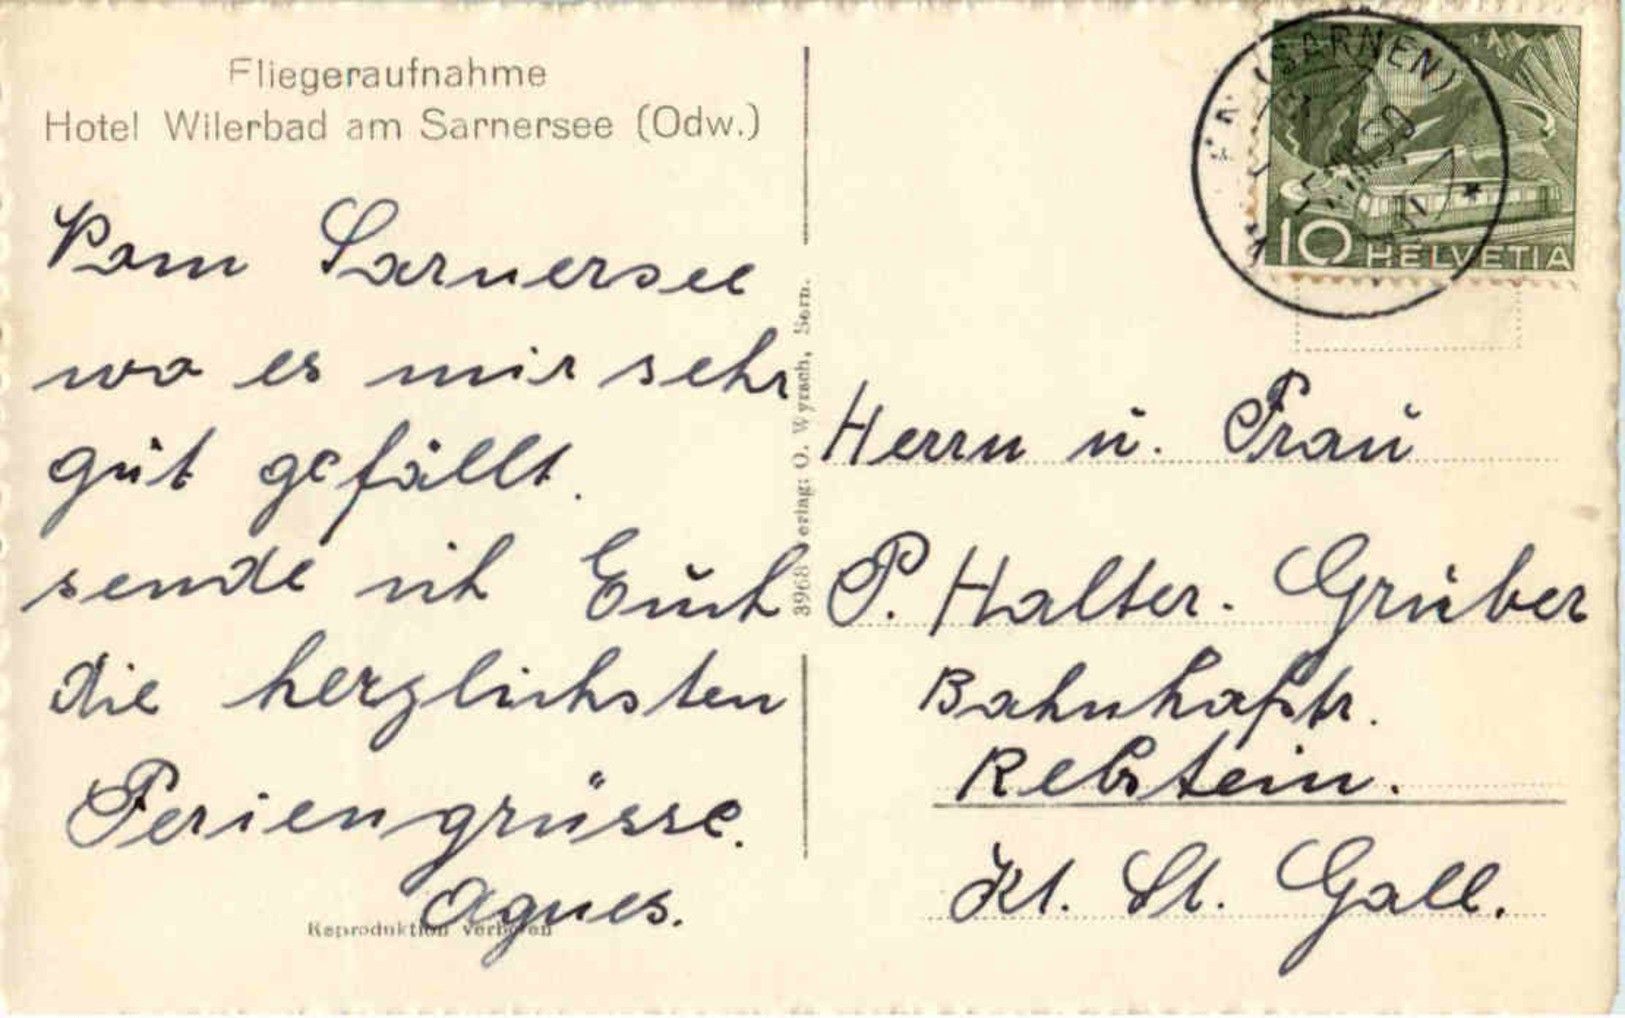 Fliegeraufnahme
Hotel Wilerbad am Sarnersee (Odw.)
Vom Sarnersee
wo es mir sehr
gut gefällt.
sende ich Euch
die herzlichsten
Feriengrüsse.
Agnes.
Reproduktion verboten
3968 Verlag: O. Wyrsch,
(SARNEN)
10 HELVETIA
Herrn u. Frau
P. Halter. Gruber
Bahnhofstr.
Rebstein.
Kt. St. Gall.